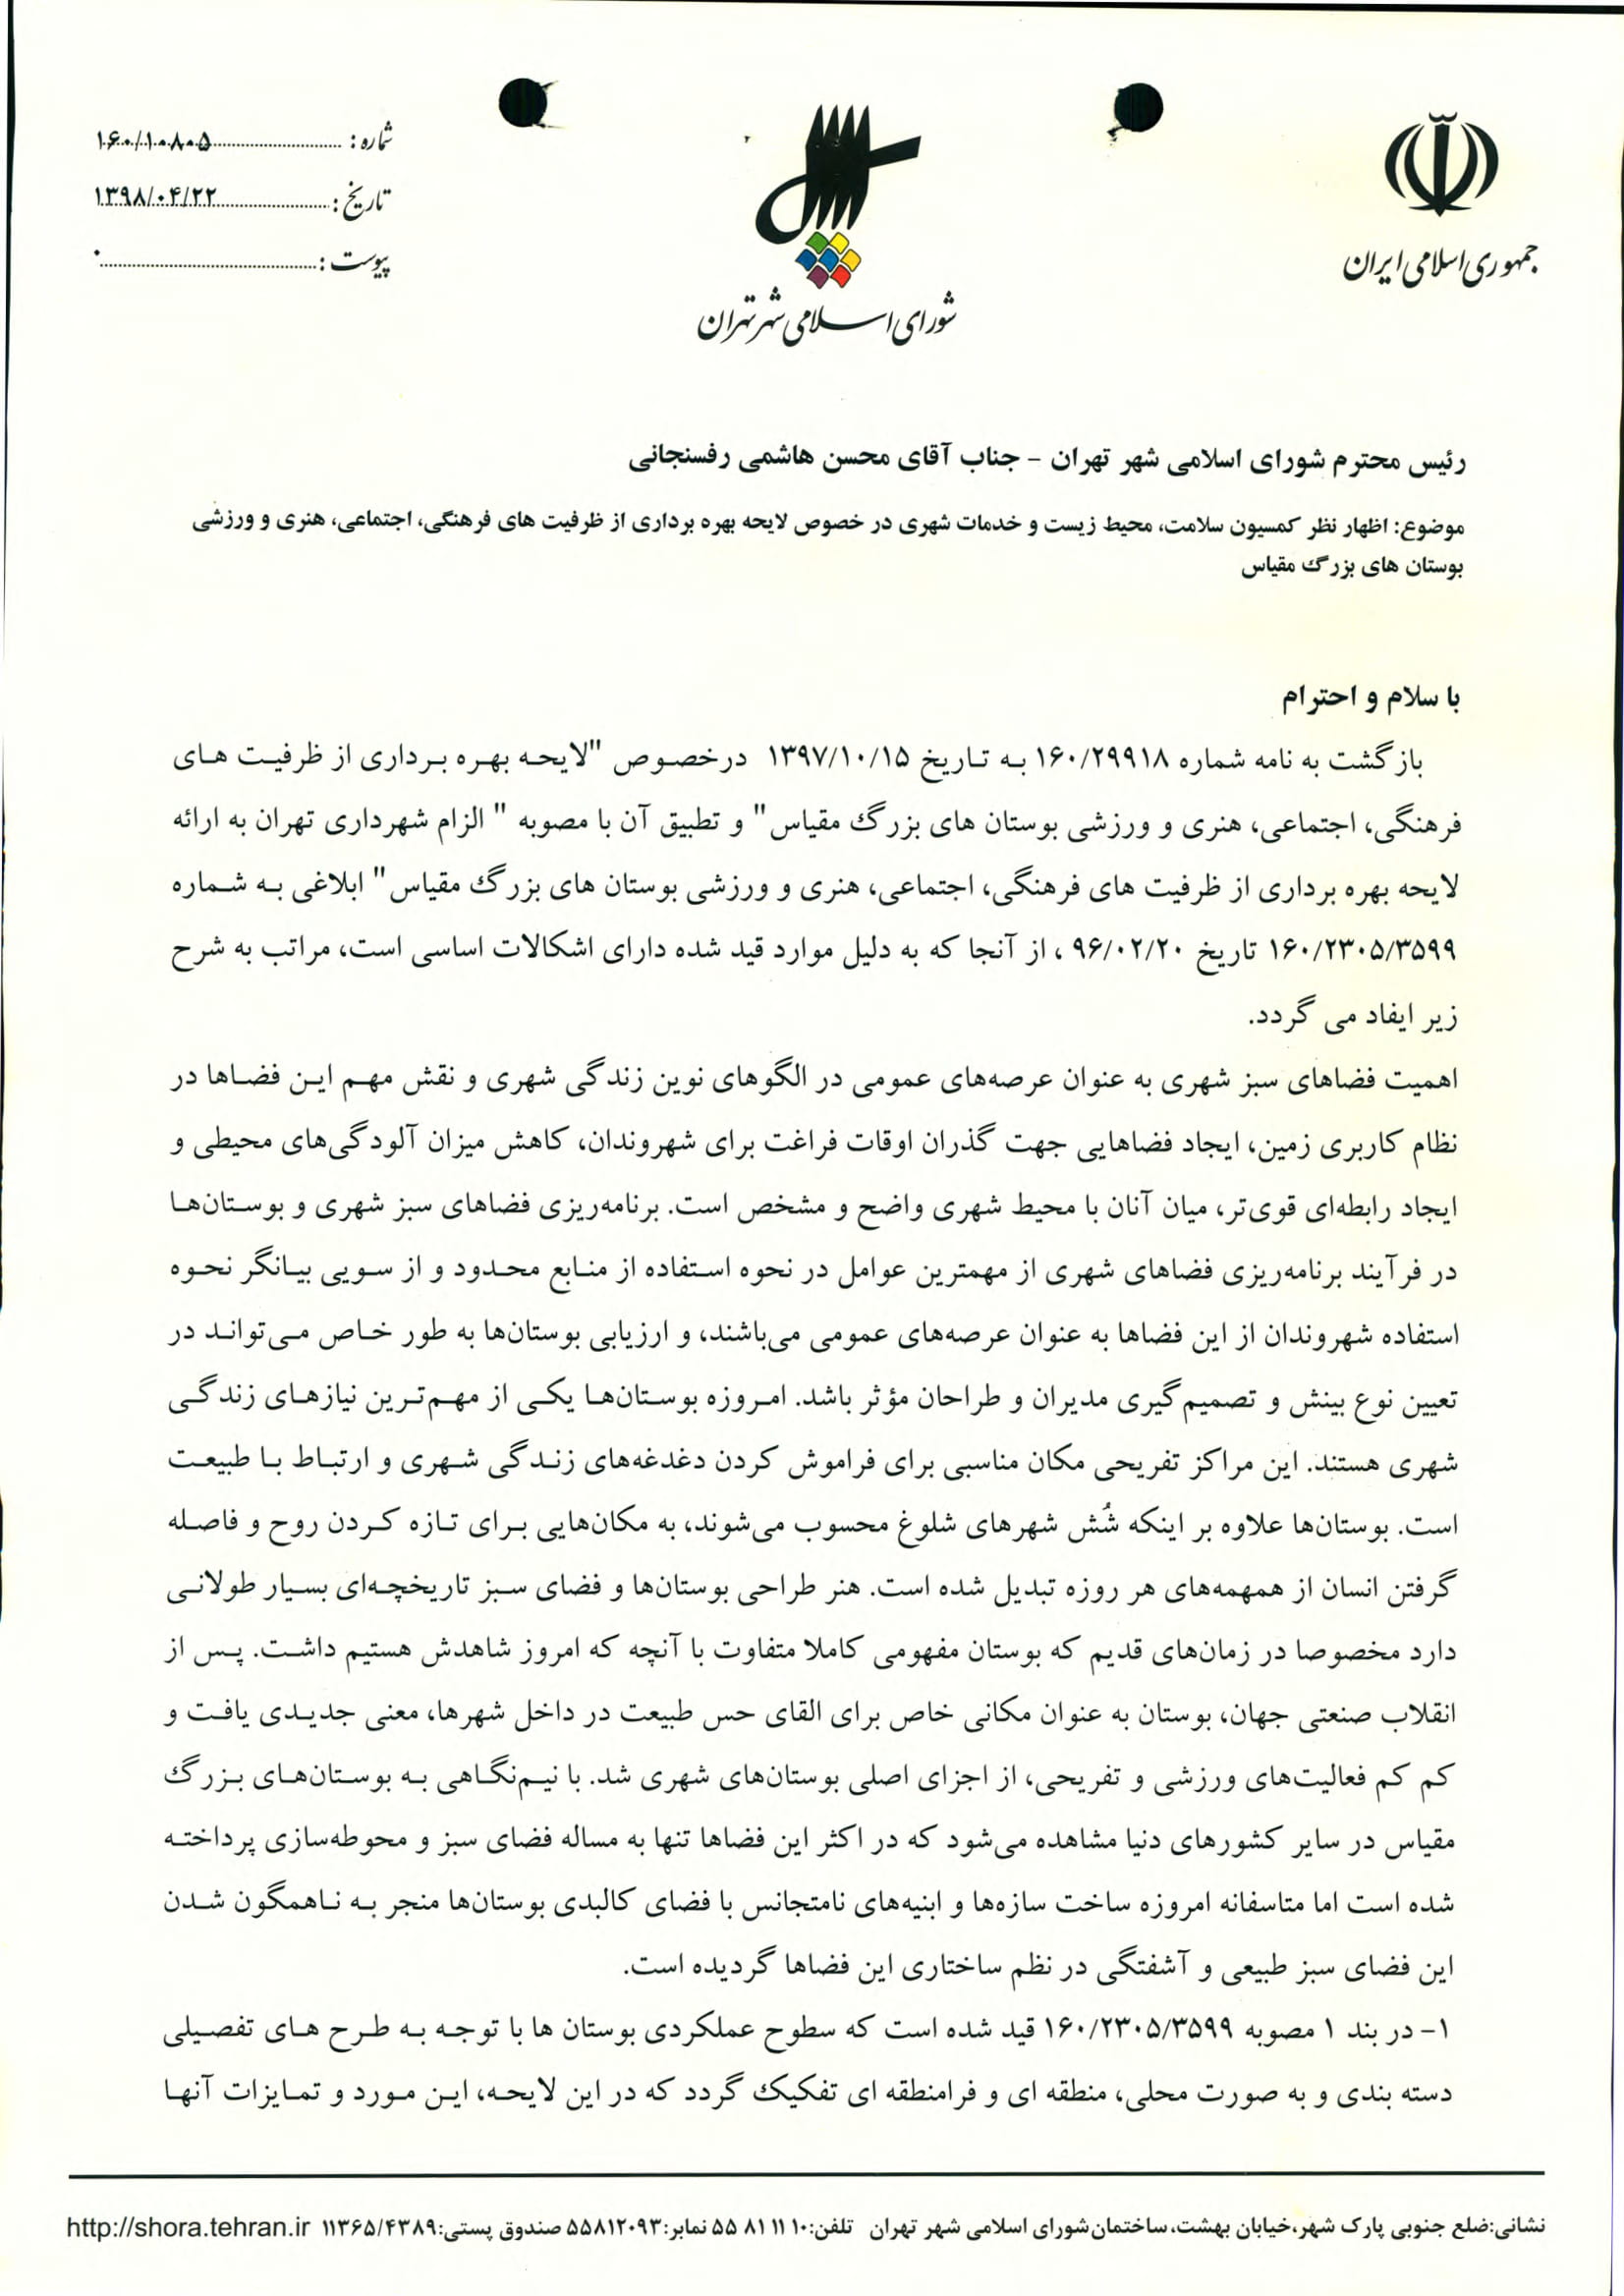 جمهوری اسلامی ایران
شورای اسلامی شهر تهران
شماره : ۱۶۰/۱۰۸۰۵
تاریخ : ۱۳۹۸/۰۴/۲۲
پیوست : ۰
رئیس محترم شورای اسلامی شهر تهران - جناب آقای محسن هاشمی رفسنجانی
موضوع: اظهار نظر کمسیون سلامت، محیط زیست و خدمات شهری در خصوص لایحه بهره برداری از ظرفیت های فرهنگی، اجتماعی، هنری و ورزشی
بوستان های بزرگ مقیاس
با سلام و احترام
بازگشت به نامه شماره ۱۶۰/۲۹۹۱۸ به تاریخ ۱۳۹۷/۱۰/۱۵ درخصوص "لایحه بهره برداری از ظرفیت های
فرهنگی، اجتماعی، هنری و ورزشی بوستان های بزرگ مقیاس" و تطبیق آن با مصوبه " الزام شهرداری تهران به ارائه
لایحه بهره برداری از ظرفیت های فرهنگی، اجتماعی، هنری و ورزشی بوستان های بزرگ مقیاس" ابلاغی به شماره
۱۶۰/۲۳۰۵/۳۵۹۹ تاریخ ۹۶/۰۲/۲۰ ، از آنجا که به دلیل موارد قید شده دارای اشکالات اساسی است، مراتب به شرح
زیر ایفاد می گردد.
اهمیت فضاهای سبز شهری به عنوان عرصه‌های عمومی در الگوهای نوین زندگی شهری و نقش مهم این فضاها در
نظام کاربری زمین، ایجاد فضاهایی جهت گذران اوقات فراغت برای شهروندان، کاهش میزان آلودگی‌های محیطی و
ایجاد رابطه‌ای قوی‌تر، میان آنان با محیط شهری واضح و مشخص است. برنامه‌ریزی فضاهای سبز شهری و بوستان‌ها
در فرآیند برنامه‌ریزی فضاهای شهری از مهمترین عوامل در نحوه استفاده از منابع محدود و از سویی بیانگر نحوه
استفاده شهروندان از این فضاها به عنوان عرصه‌های عمومی می‌باشند، و ارزیابی بوستان‌ها به طور خاص می‌تواند در
تعیین نوع بینش و تصمیم‌گیری مدیران و طراحان مؤثر باشد. امروزه بوستان‌ها یکی از مهم‌ترین نیازهای زندگی
شهری هستند. این مراکز تفریحی مکان مناسبی برای فراموش کردن دغدغه‌های زندگی شهری و ارتباط با طبیعت
است. بوستان‌ها علاوه بر اینکه شُش شهرهای شلوغ محسوب می‌شوند، به مکان‌هایی برای تازه کردن روح و فاصله
گرفتن انسان از همهمه‌های هر روزه تبدیل شده است. هنر طراحی بوستان‌ها و فضای سبز تاریخچه‌ای بسیار طولانی
دارد مخصوصا در زمان‌های قدیم که بوستان مفهومی کاملا متفاوت با آنچه که امروز شاهدش هستیم داشت. پس از
انقلاب صنعتی جهان، بوستان به عنوان مکانی خاص برای القای حس طبیعت در داخل شهرها، معنی جدیدی یافت و
کم کم فعالیت‌های ورزشی و تفریحی، از اجزای اصلی بوستان‌های شهری شد. با نیم‌نگاهی به بوستان‌های بزرگ
مقیاس در سایر کشورهای دنیا مشاهده می‌شود که در اکثر این فضاها تنها به مساله فضای سبز و محوطه‌سازی پرداخته
شده است اما متاسفانه امروزه ساخت سازه‌ها و ابنیه‌های نامتجانس با فضای کالبدی بوستان‌ها منجر به ناهمگون شدن
این فضای سبز طبیعی و آشفتگی در نظم ساختاری این فضاها گردیده است.
۱- در بند ۱ مصوبه ۱۶۰/۲۳۰۵/۳۵۹۹ قید شده است که سطوح عملکردی بوستان ها با توجه به طرح های تفصیلی
دسته بندی و به صورت محلی، منطقه ای و فرامنطقه ای تفکیک گردد که در این لایحه، این مورد و تمایزات آنها
نشانی:ضلع جنوبی پارک شهر،خیابان بهشت،ساختمان شورای اسلامی شهر تهران تلفن:۱۰ ۱۱ ۸۱ ۵۵ نمابر:۵۵۸۱۲۰۹۳ صندوق پستی:۱۱۳۶۵/۴۳۸۹ http://shora.tehran.ir